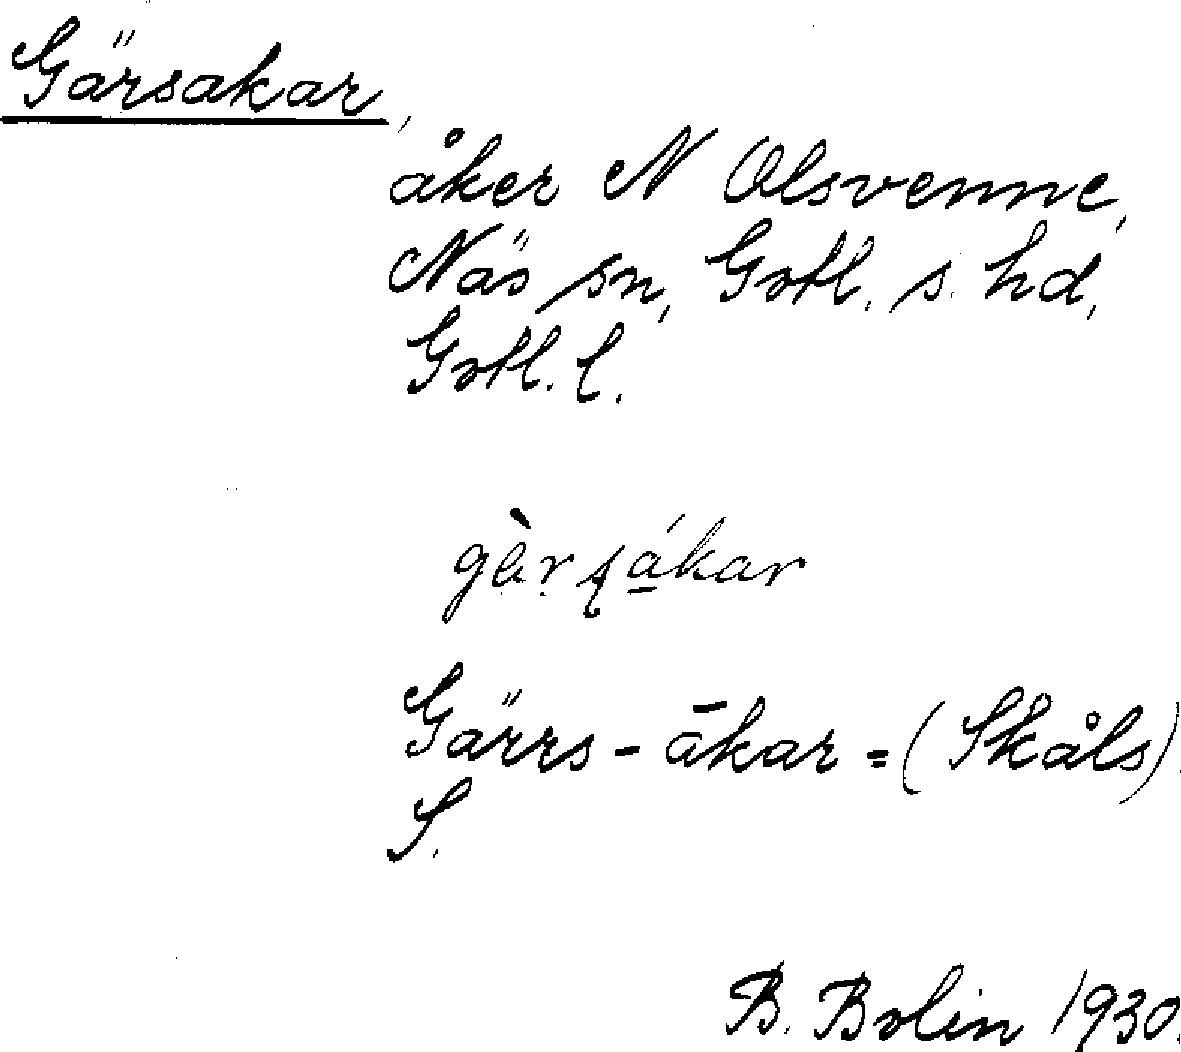 Gärsakar,
åker N Olsvenne,
Näs sn, Gotl. s. hd,
Gotl. l.
gèrsákar
Gärrs - ākar = (Skåls)
S.
B. Bolin 1930.